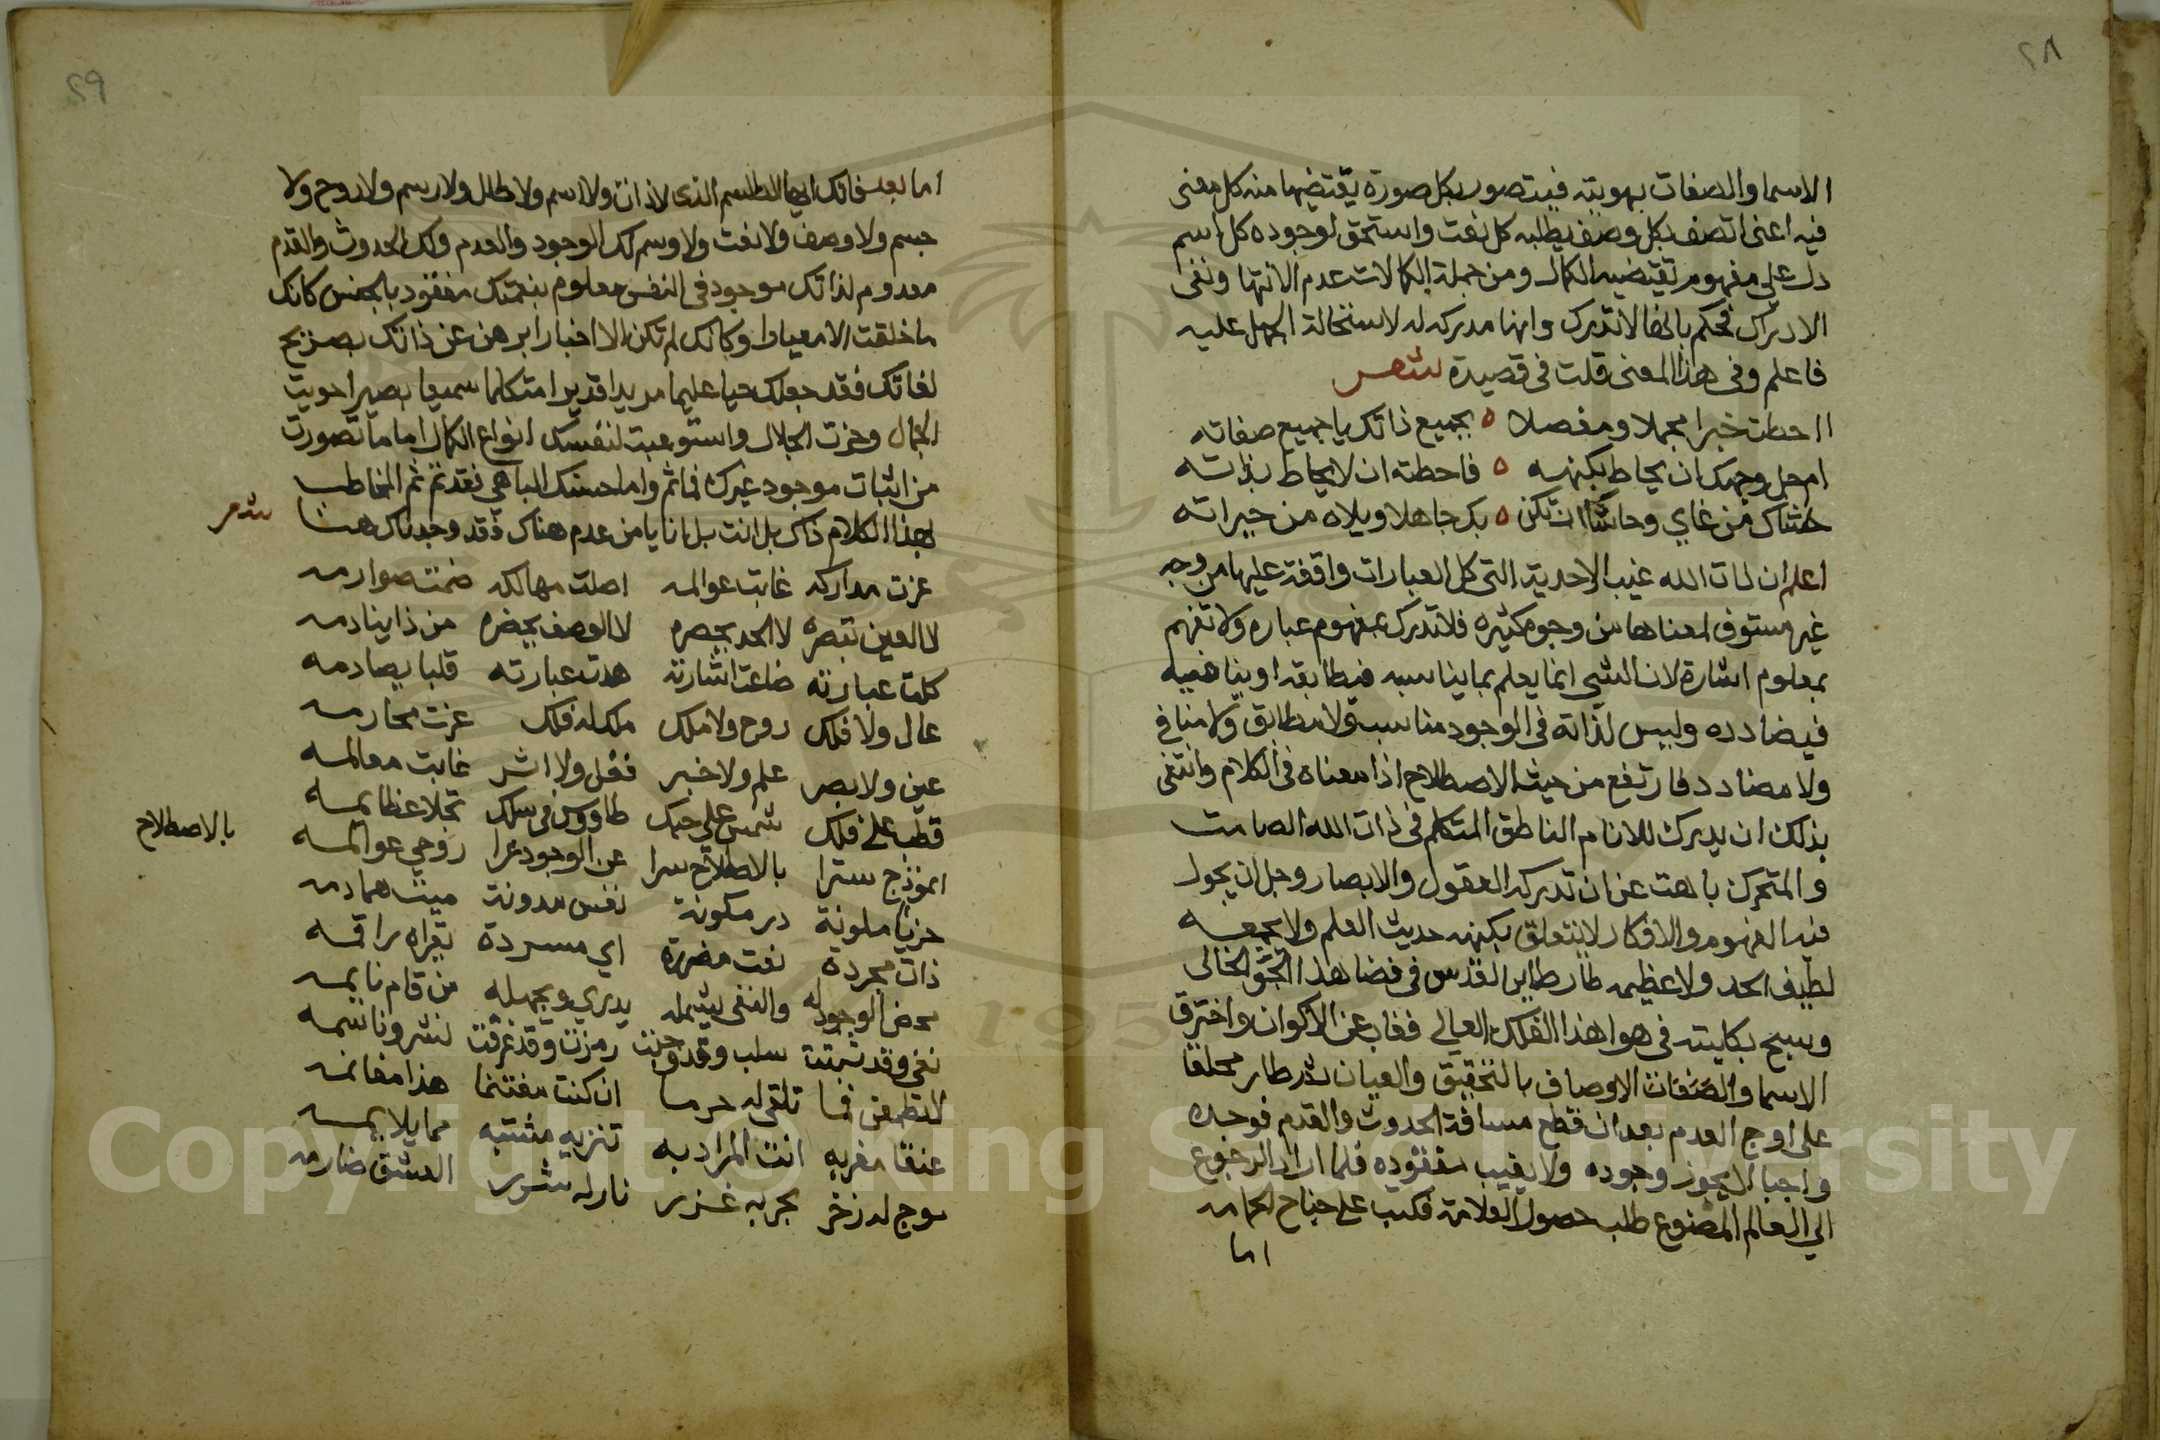 ٢٨
الاسما والصفات بهويته فيتصور بكل صورة يقتضيها منه كل معنى
فيه اعنى اتصف بكل وصف يطلبه كل نعت واستحق لوجوده كل اسم
دل على مفهوم تقتضيه الكمال ومن جملة الكمالات عدم الانتها ونفى
الادراك فحكم بانها لا تدرك وانها مدركه له لاستحالة الجهل عليه
فاعلم وفى هذا المعنى قلت فى قصيدة شعر
ااحطت خبرا مجملا ومفصلا ٥ بجميع ذاتك يا جميع صفاته
ام جل وجهك ان يحاط بكنهه ٥ فاحطته ان لا يحاط بذاته
حاشاك من غاي وحاشا ان تكن ٥ بك جاهلا ويلاه من حيراته
اعلم ان ذات الله غيب الاحدية التى كل العبارات واقفة عليها من وجه
غير مستوف لمعناها من وجوه كثيره فلا تدرك بمفهوم عباره ولا تفهم
بمعلوم اشارة لان الشي انما يعلم بما يناسبه فيطابقه او ينافيه
فيضادده وليس لذاته فى الوجود مناسب ولا مطابق ولا منافى
ولا مضادد فارتفع من حيث الاصطلاح اذا معناه فى الكلام وانتفى
بذلك ان يدرك للانام الناطق المتكلم فى ذات الله الصامت
والمتحرك باهت عز ان تدركه العقول والابصار وجل ان يجول
فيه الفهوم والافكار لا يتعلق بكنهه حديث العلم ولا يجمعه
لطيف الحد ولا عظيمه طار طاير القدس فى فضا هذا الجو الخالى
وسبح بكليته فى هوا هذا الفلك العالي فغاب عن الاكوان واخترق
الاسما والصفات الاوصاف بالتحقيق والعيان ثم طار محلقا
على اوج العدم بعد ان قطع مسافة الحدوث والقدم فوجده
واجبا لا يجوز وجوده ولا يغيب مفقوده فلما اراد الرجوع
الى العالم المصنوع طلب حصول العلامة فكتب على جناح الحمامه
اما
٢٩
اما بعد فانك ايها الطلسم الذى لا ذات ولا اسم ولا ظل ولا رسم ولا روح ولا
جسم ولا وصف ولا نعت ولا وسم لك الوجود والعدم ولك الحدوث والقدم
معدوم لذاتك موجود فى النفس معلوم بنعمتك مفقود بالجنس كانك
ما خلقت الا معيارا وكانك لم تكن الا اخبارا برهن عن ذاتك بصريح
لغاتك فقد جعلك حيا عليما مريدا قديرا متكلما سميعا بصيرا حويت
الجمال وحزت الجلال واستوعبت لنفسك انواع الكمال اما ما تصورت
من اثبات موجود غيرك فما ثم واما حسنك الباهي فقد تم ثم المخاطب
بهذا الكلام ذاك بل انت بل انا يا من عدم هناك فقد وجدناك هنا شعر
عزت مداركه غابت عوالمه اصلت مهالكه ضمت صوارمه
لا العين تبصره لا الحد يحصره لا الوصف يحضره من ذا ينادمه
كلت عبارته ضاعت اشارته هدت عبارته قلبا يصادمه
عال ولا فلك روح ولا ملك ملك له فلك عزت محارمه
عين ولا بصر علم ولا خبر فعل ولا اثر غابت معالمه
قطب على فلك شمس على حبك طاووس فى سلك تجلا عظايمه
انموذج سترا بالاصطلاح سرا عن الوجود عرا روحى عوالمه
بالاصطلاح
حزيا ملونة در مكونة نفس مدونة ميت همادمه
ذات مجردة نعت مفردة اي مسردة يقراه راقمه
محض الوجود له والنفى يشمله يدري ويجهله من قام نايمه
نفى وقد ثبتت سلب وقد وجبت رمزت وقد عرفت نشر وناسمه
لا تطمعن فما تلقى له حرما ان كنت مغتنما هذا مغانمه
عنقا مغربه انت المراد به تنزيه مشتبه مما يلايمه
موج له زخر بحر به غزر نار له شرر العشق ضارمه